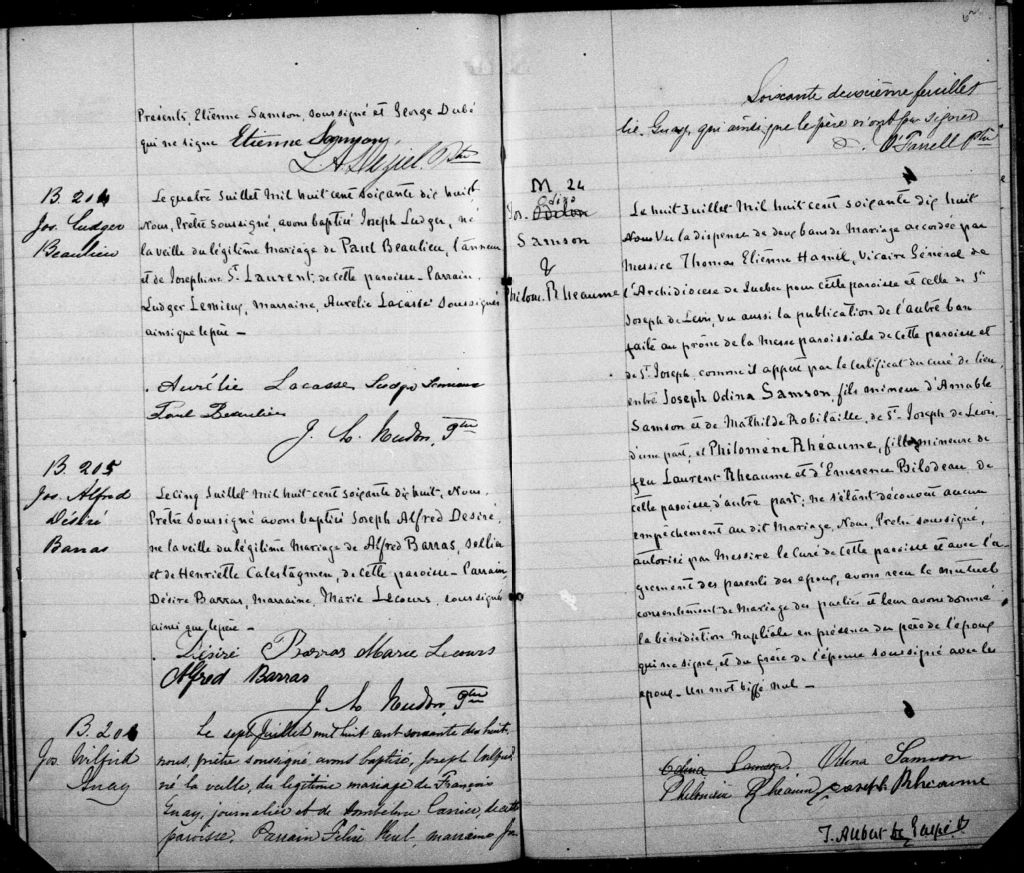 Présents, Etienne Samson, soussigné et George Dubé
qui ne signe Etienne Samson
Ptre
B. 204
Jos. Ludger
Beaulieu
Le quatre Juillet Mil huit cent soixante dix huit,
Nous, Prêtre soussigné, avons baptisé Joseph Ludger, né
la veille du légitime mariage de Paul Beaulieu,
et de Josephine St. Laurent, de cette paroisse - Parrain,
Ludger Lemieux, marraine, Aurelie Lacasse soussignés
ainsi que le père -
Aurélie Lacasse Ludger Lemieux
Paul Beaulieu
J. Nadon, Ptre
B. 205
Jos. Alfred
Désiré
Barras
Le cinq Juillet Mil huit cent soixante dix huit, Nous,
Prêtre soussigné avons baptisé Joseph Alfred Désiré,
né la veille du légitime mariage de Alfred Barras, sellier
et de Henriette, de cette paroisse - Parrain,
Désiré Barras, Marraine, Marie Lecours, soussignés
ainsi que le père -
Désiré Barras Marie Lecours
Alfred Barras
J. Nadon, Ptre
B. 206
Jos. Wilfrid
Guay
Le sept Juillet mil huit cent soixante dix huit
nous, prêtre soussigné, avons baptisé, Joseph Wilfrid
né la veille, du légitime mariage de François
Guay, journalier et de Carrier, de cette
paroisse. Parrain Félix, marraine
Soixante deuxième feuillet
lie Guay, qui ainsi que le père n'ont pu signer
O'Farrell Ptre
M 24
Odina
Jos. Odilon
Samson
&
Philom. Rhéaume
Le huit Juillet Mil huit cent soixante dix huit
Nous Vu la dispense de deux bans de Mariage accordée par
Messire Thomas Etienne Hamel, Vicaire Général de
l'Archidiocèse de Quebec pour cette paroisse et celle de St
Joseph de Levis, vu aussi la publication de l'autre ban
faite au prône de la Messe paroissiale de cette paroisse et
de St. Joseph, comme il appert par le certificat du curé de lieu,
entre Joseph Odina Samson, fils mineur d'Amable
Samson et de Mathilde Robitaille, de St. Joseph de Levis,
d'une part, et Philomène Rhéaume, fille mineure de
feu Laurent Rheaume et d'Emerence Bilodeau de
cette paroisse d'autre part; ne s'étant découvert aucun
empêchement au dit Mariage, Nous, Prêtre soussigné,
autorisé par Messire le Curé de cette paroisse et avec l'a-
grément des parents des epoux, avons reçu le mutuel
consentement de mariage des parties et leur avons donné
la bénédiction nuptiale en présence du père de l'epoux
qui ne signe, et du frère de l'épouse soussigné avec les
epoux - Un mot biffé nul -
Odina Samson Odina Samson
Philomène Rhéaume Joseph Rheaume
T. Aubert de Gaspé Ptre